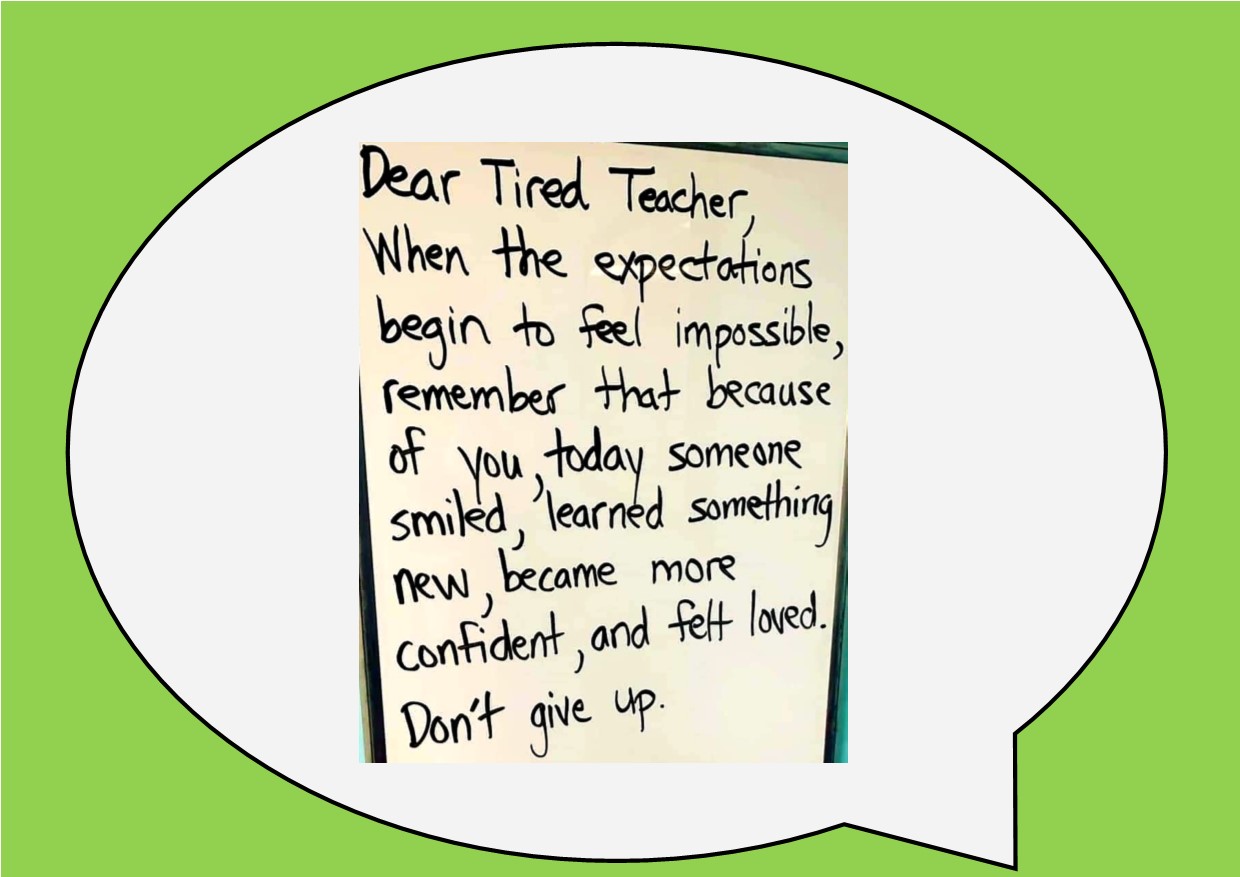 Dear Tired Teacher,
When the expectations
begin to feel impossible,
remember that because
of you, today someone
smiled, learned something
new, became more
confident, and felt loved.
Don't give up.